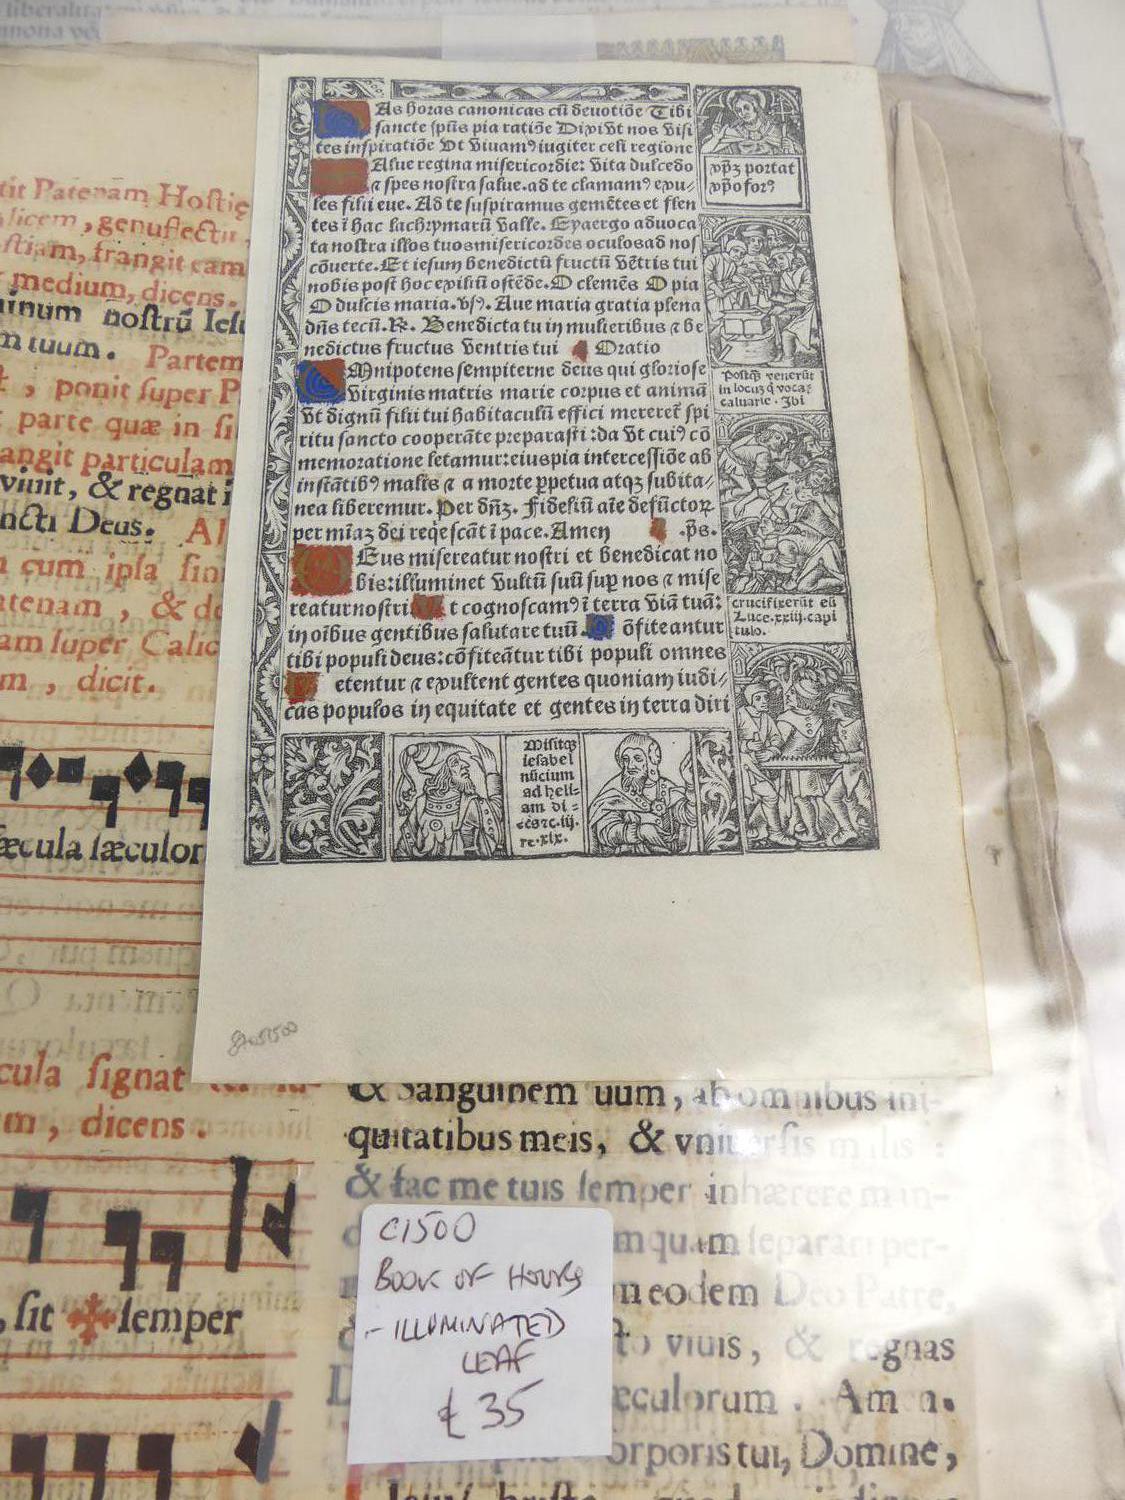 As horas canonicas cū deuotiōe Tibi
sancte spūs pia ratiōe Dixiꝰt nos visi
tes inspiratiōe vt viuamꝰ iugiter celi regione
Alue regina misericordie: vita dulcedo
⁊ spes nostra salue. ad te clamamꝰ exu-
les filii eue. Ad te suspiramus gemētes et flen
tes ī hac lachrymarū valle. Eya ergo aduoca
ta nostra illos tuos misericordes oculos ad nos
cōuerte. Et iesum benedictū fructū vētris tui
nobis post hoc exiliū ostēde. O clemēs O pia
O dulcis maria. vsꝰ. Aue maria gratia plena
dn̄s tecū. ℟. Benedicta tu in mulieribus ⁊ be
nedictus fructus ventris tui Oratio
Mnipotens sempiterne deus qui gloriose
virginis matris marie corpus et animā
vt dignū filii tui habitaculū effici mereret̄ spi
ritu sancto cooperāte preparasti: da vt cuiꝰ cō
memoratione letamur: eius pia intercessiōe ab
instātibꝰ malis ⁊ a morte ꝑpetua atqꝫ subita-
nea liberemur. Per dn̄ꝫ. Fideliū aīe defūctoꝝ
per mīaꝫ dei reqͥescāt ī pace. Amen .p̄s.
Eus misereatur nostri et benedicat no
bis: illuminet vultū suū suꝑ nos ⁊ mise
reatur nostri t cognoscamꝰ ī terra viā tuā:
in oībus gentibus salutare tuū. ōfiteantur
tibi populi deus: cōfiteātur tibi populi omnes
etentur ⁊ exultent gentes quoniam iudi-
cas populos in equitate et gentes in terra diri
xp̄ꝫ portat
xp̄oforꝰ
Postqͣ venerūt
in locuꝫ q̄ voca-
caluarie. Ibi
crucifixerūt eū
Luce. xxiij. capi
tulo.
Misitqꝫ
iesabel
nūcium
ad heli-
am di-
cēs ⁊c. iij.
re. xix.
tit Patenam Hostię
licem, genuflectit,
stiam, frangit eam
medium, dicens.
minum nostrū Iesu
m tuum. Partem
, ponit super P
parte quæ in si
angit particulam
viuit, & regnat i
ncti Deus. Al
cum ipsa sin
atenam, & de
am super Calic
m, dicit.
æcula sæculor
cula signat
m, dicens.
, sit ✠ semper
& Sanguinem uum, ab omnibus ini-
quitatibus meis, & vniuersis malis:
& fac me tuis semper inhærere man-
mquam separari per-
n eodem Deo Patre,
to viuis, & regnas
æculorum. Amen.
orporis tui, Domine,
C1500
BOOK OF HOURS
- ILLUMINATED
LEAF
£35